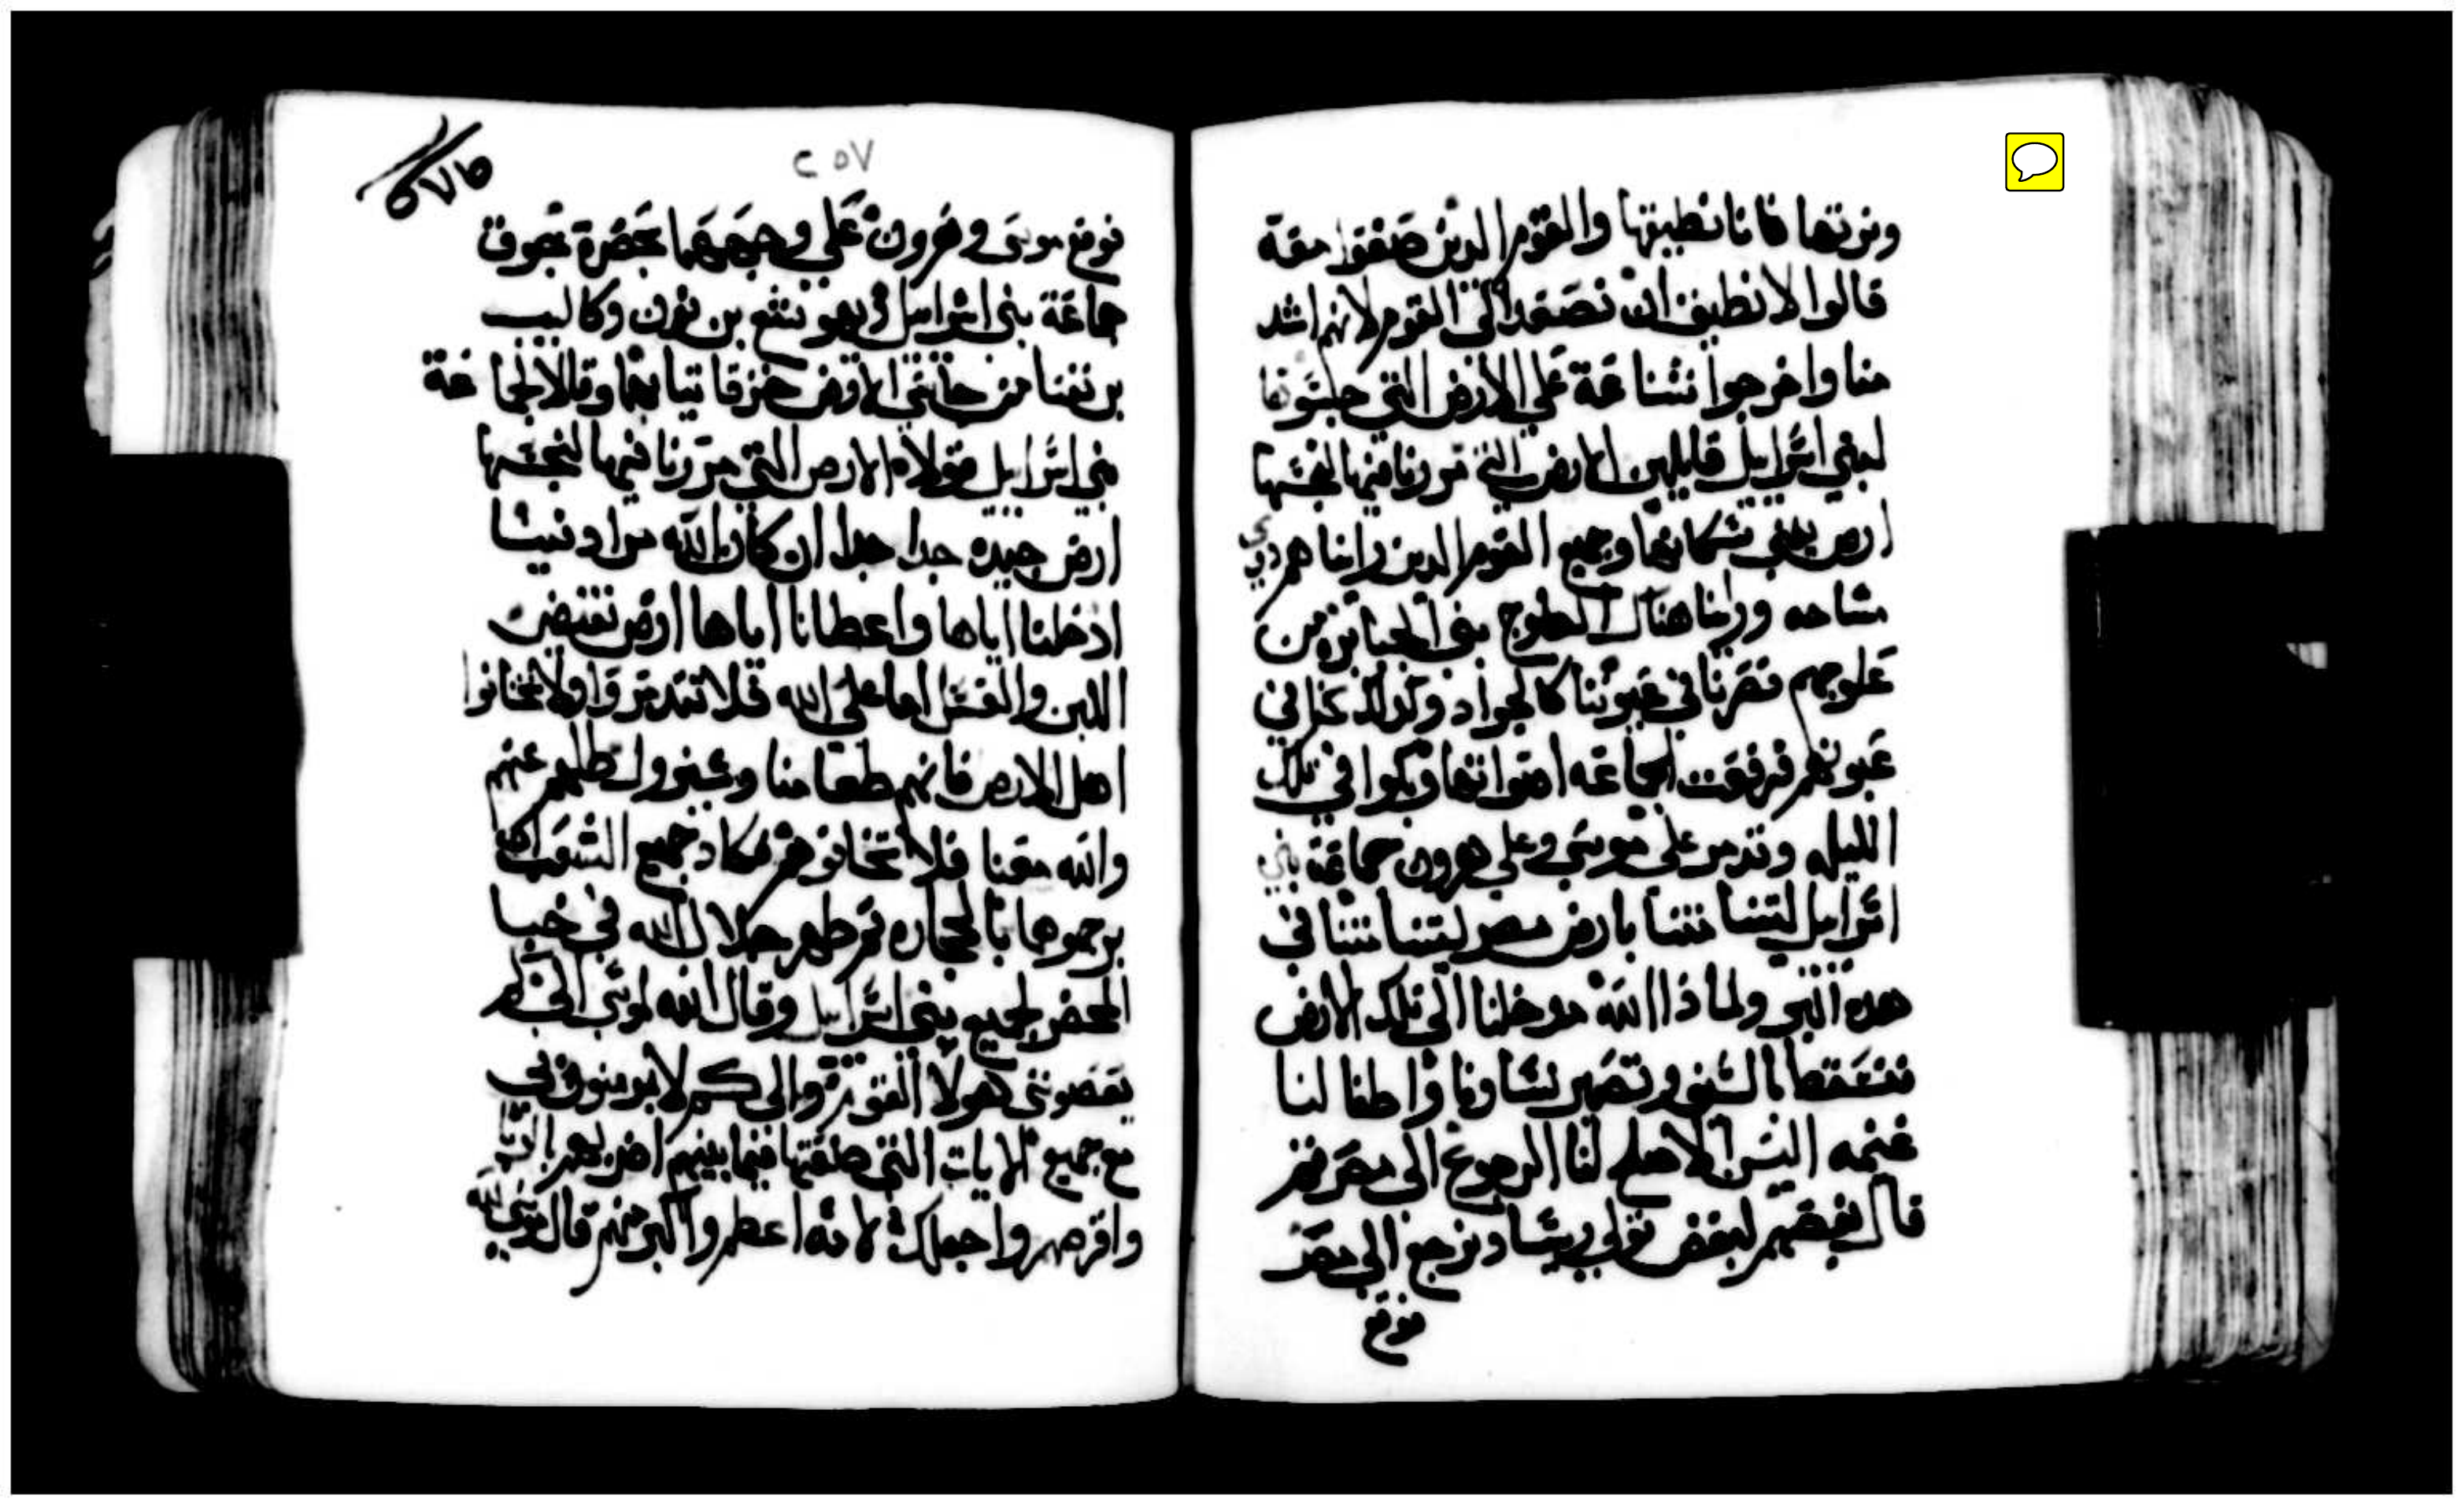 ونرتها فاننا نطيقها والقوم الدين صعقوا معه
قالوا لا نطيق ان نصعد الى القوم لانهم اشد
منا واخرجوا شناعة على الارض التي جسوها
لبني اسرايل قايلين الارض التي مررنا فيها لنجسها
ارض سكانها وجميع القوم الدين راينا هم دوي
مساحه وراينا هناك العلوج بني الجبابره من
علوجهم فصرنا في عيوننا كالجراد وكدلك كنا في
عيونهم فرفعت الجماعه اصواتها وبكوا في تلك
الليله وتدمر على موسى وعلى هرون جماعة بني
اسرايل ليتنا متنا بارض مصر ليتنا متنا في
هده البر ولماذا الله مدخلنا الى تلك الارض
فنسقط بالسيف وتصير نساونا واطفالنا
غنيمه اليس الاصلح لنا الرجوع الى مصر ثم
قال بعضهم لبعض نولي ريسا ونرجع الى مصر
فوقع
٢٥٧
فوقع موسى وهرون على وجههما بحضرة جوق
جماعة بني اسرايل ويهوشع بن نون وكاليب
بن يفنا من جانبي الارض خزقا ثيابهما وقالا لجماعة
بني اسرايل قولا الارض التي مررنا فيها لنجسها
ارض جيده جدا جدا ان كان الله مرادنيسا
ادخلنا اياها واعطانا اياها ارض تفيض
اللبن والعسل اما على الله فلا تتدمروا ولا تخافوا
اهل الارض فانهم طعامنا وسيزول ظلهم عنهم
والله معنا فلا تخافوهم فكاد جميع الشعب ان
يرجموها بالحجاره ثم ظهر جلال الله في خبا
المحضر لجميع بني اسرايل وقال الله لموسى الى كم
يعصونني هولا القوم والى كم لا يومنون بي
مع جميع الايات التي صنعتها فيما بينهم اضربهم بالوبا
واقرضهم واجعلك لامه اعظم واكبر منهم قال موسى لله